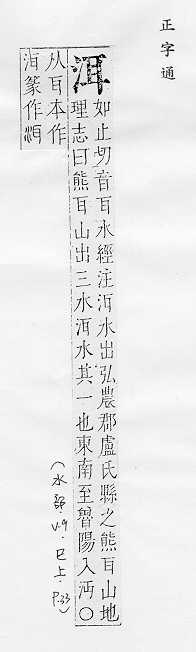 正字通
洱
如止切音耳水經注洱水出弘農郡盧氏縣之熊耳山地
理志曰熊耳山出三水洱水其一也東南至魯陽入沔〇
从耳本作
洱篆作洱
(水部·V.9·巳上·P.33)